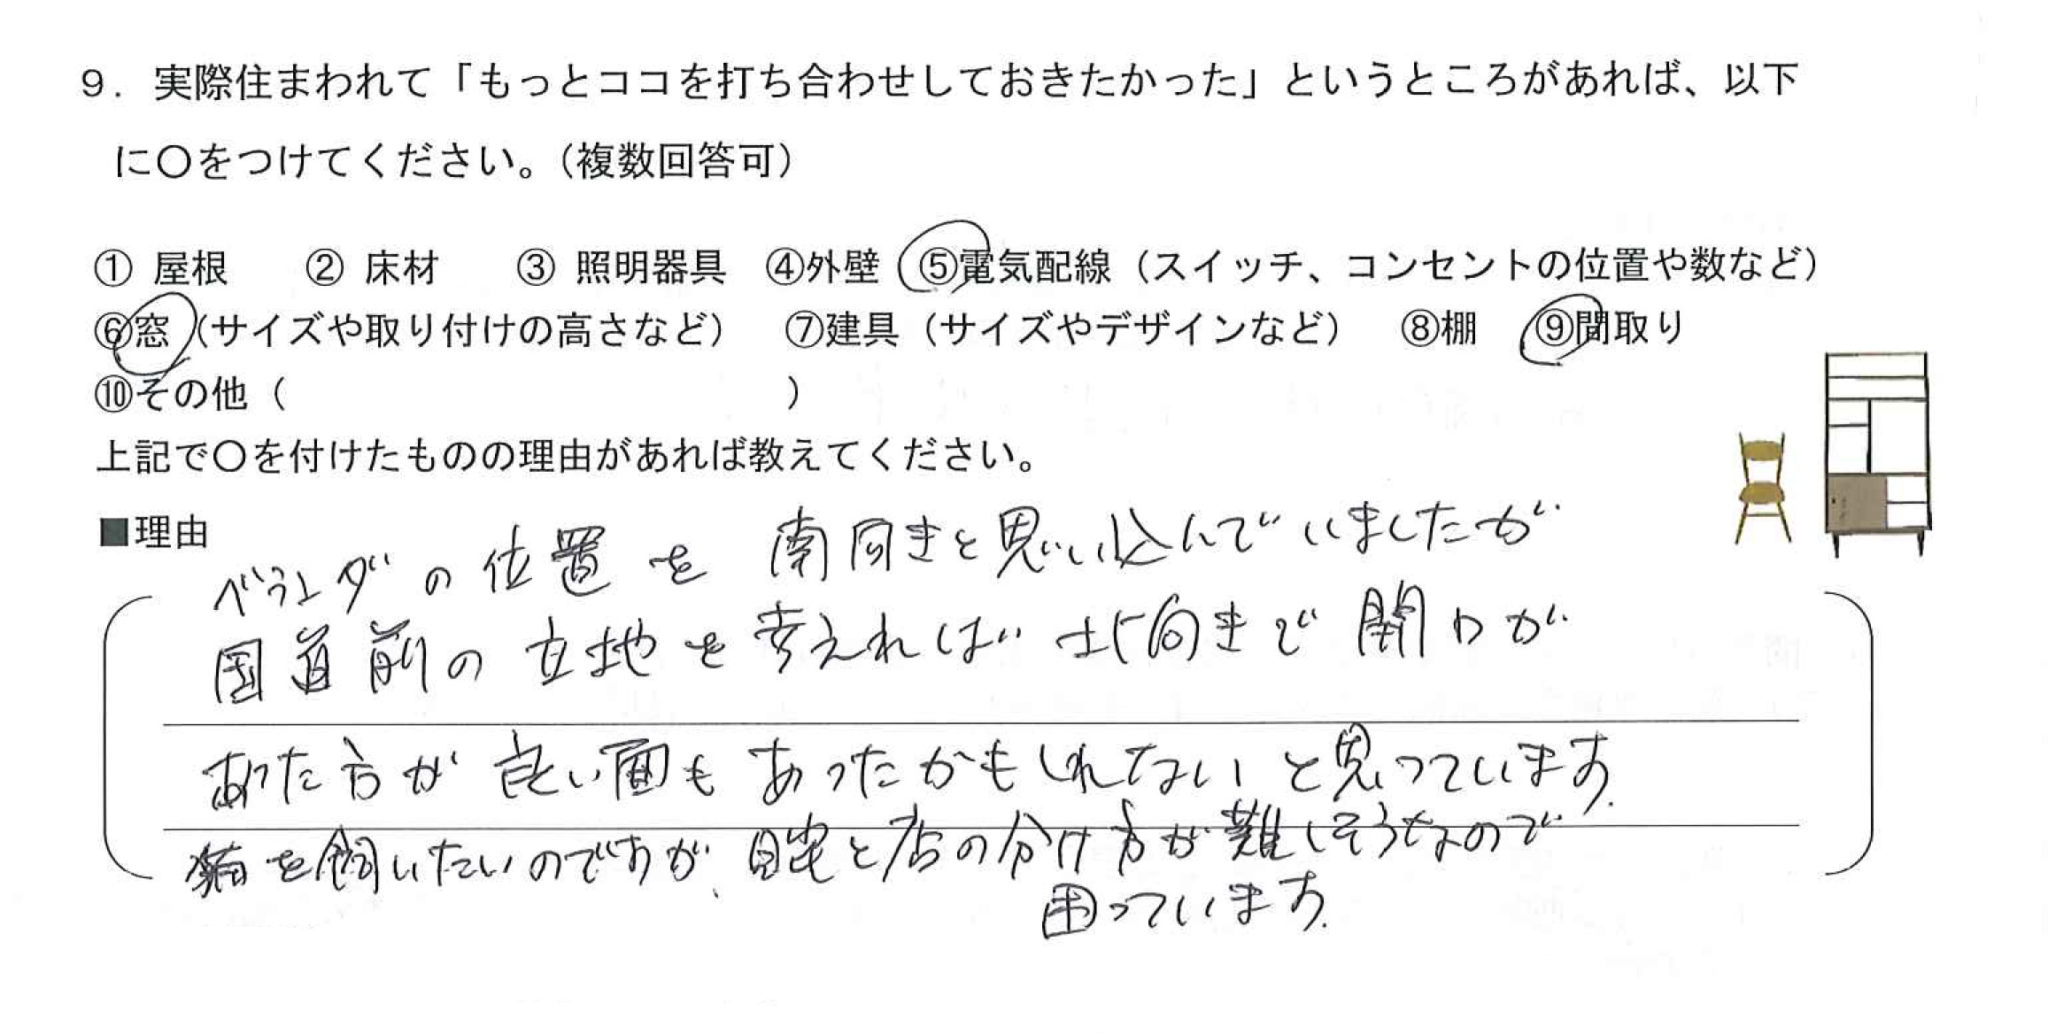 ９．実際住まわれて「もっとココを打ち合わせしておきたかった」というところがあれば、以下
に〇をつけてください。（複数回答可）
① 屋根　② 床材　③ 照明器具　④外壁　⑤電気配線（スイッチ、コンセントの位置や数など）
⑥窓（サイズや取り付けの高さなど）　⑦建具（サイズやデザインなど）　⑧棚　⑨間取り
⑩その他（　　　　　　　　　　　　　）
上記で〇を付けたものの理由があれば教えてください。
■理由
ベランダの位置を南向きと思い込んでいましたが
国道前の立地を考えれば北向きで開口が
あった方が良い面もあったかもしれないと思っています。
猫を飼いたいのですが、自宅と店の分け方が難しそうなので
困っています。